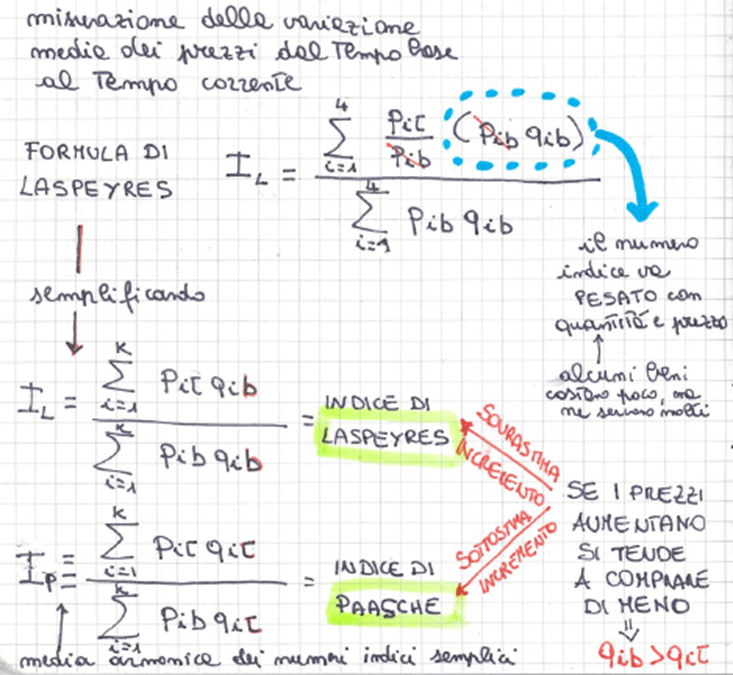 misurazione della variazione
media dei prezzi dal Tempo base
al Tempo corrente
FORMULA DI
LASPEYRES
I_L = \frac{\sum_{i=1}^{4} \frac{Pit}{Pib} (Pib qib)}{\sum_{i=1}^{4} Pib qib}
il numero
indice va
PESATO con
quantità e prezzo
alcuni beni
costano poco, ma
ne servono molti
semplificando
I_L = \frac{\sum_{i=1}^{K} Pit qib}{\sum_{i=1}^{K} Pib qib} = INDICE DI
LASPEYRES
SOVRASTIMA
INCREMENTO
SE I PREZZI
AUMENTANO
SI TENDE
A COMPRARE
DI MENO
⇓
qib > qit
SOTTOSTIMA
INCREMENTO
I_P = \frac{\sum_{i=1}^{K} Pit qit}{\sum_{i=1}^{K} Pib qit} = INDICE DI
PAASCHE
media armonica dei numeri indici semplici